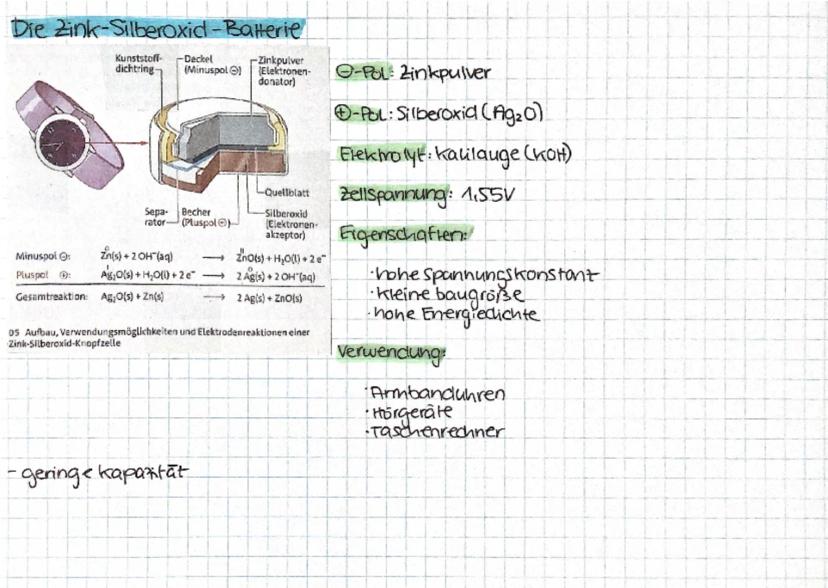 Die Zink-Silberoxid-Batterie
Kunststoff-
dichtring
Deckel
(Minuspol ⊖)
Zinkpulver
(Elektronen-
donator)
Quellblatt
Sepa-
rator
Becher
(Pluspol ⊕)
Silberoxid
(Elektronen-
akzeptor)
Minuspol ⊖: Zn(s) + 2 OH⁻(aq) → ZnO(s) + H₂O(l) + 2 e⁻
Pluspol ⊕: Ag₂O(s) + H₂O(l) + 2 e⁻ → 2 Ag(s) + 2 OH⁻(aq)
Gesamtreaktion: Ag₂O(s) + Zn(s) → 2 Ag(s) + ZnO(s)
05 Aufbau, Verwendungsmöglichkeiten und Elektrodenreaktionen einer
Zink-Silberoxid-Knopfzelle
- geringe kapazität
⊖-Pol: Zinkpulver
⊕-Pol: Silberoxid (Ag₂O)
Elektrolyt: Kalilauge (KOH)
Zellspannung: 1,55V
Eigenschaften:
·hohe Spannungskonstant
·kleine baugröße
·hohe Energiedichte
Verwendung:
·Armbanduhren
·Hörgeräte
·Taschenrechner